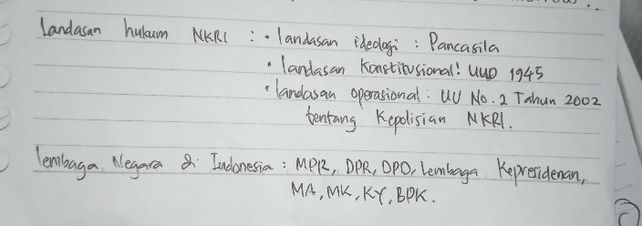 Landasan hukum NKRI : • landasan ideologi : Pancasila
• landasan Konstitusional : UUD 1945
• landasan operasional : UU No. 2 Tahun 2002
tentang Kepolisian NKRI.
Lembaga Negara di Indonesia : MPR, DPR, DPD, Lembaga Kepresidenan,
MA, MK, KY, BPK.